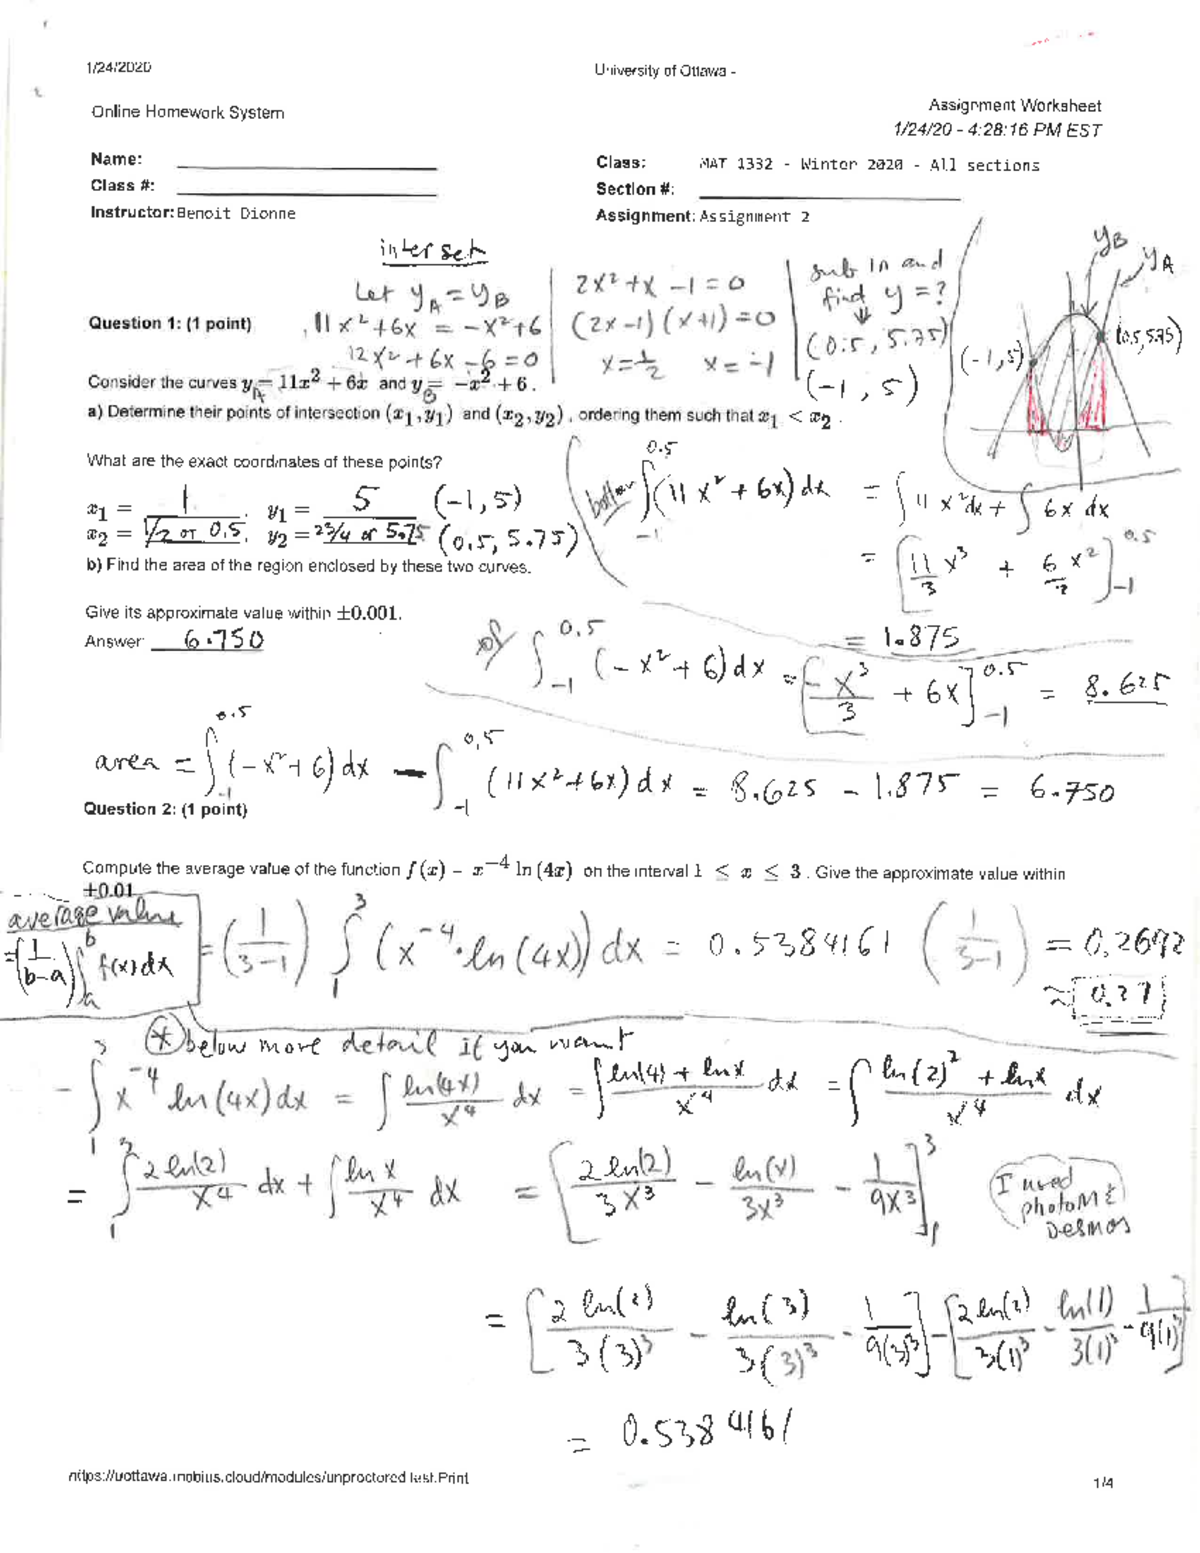 1/24/2020
University of Ottawa -
Online Homework System
Assignment Worksheet
1/24/20 - 4:28:16 PM EST
Name:
Class: MAT 1332 - Winter 2020 - All sections
Class #:
Section #:
Instructor: Benoit Dionne
Assignment: Assignment 2
interset
Let y_A = y_B
11x² + 6x = -x² + 6
12x² + 6x - 6 = 0
2x² + x - 1 = 0
(2x-1)(x+1) = 0
x = 1/2 x = -1
sub in and
find y = ?
(0.5, 5.75)
(-1, 5)
y_B
y_A
(-1,5)
(0.5,5.75)
Question 1: (1 point)
Consider the curves y_A = 11x² + 6x and y_B = -x² + 6 .
a) Determine their points of intersection (x₁, y₁) and (x₂, y₂) , ordering them such that x₁ < x₂ .
What are the exact coordinates of these points?
x₁ = 1 y₁ = 5 (-1, 5)
x₂ = 1/2 or 0.5; y₂ = 23/4 or 5.75 (0.5, 5.75)
b) Find the area of the region enclosed by these two curves.
Give its approximate value within ±0.001.
Answer 6.750
bottom ∫_{-1}^{0.5} (11x² + 6x) dx = ∫ 11x² dx + ∫ 6x dx
= [11/3 x³ + 6/2 x²]_{-1}^{0.5}
= 1.875
∫_{-1}^{0.5} (-x² + 6) dx = [-x³/3 + 6x]_{-1}^{0.5} = 8.625
area = ∫_{-1}^{0.5} (-x² + 6) dx - ∫_{-1}^{0.5} (11x² + 6x) dx = 8.625 - 1.875 = 6.750
Question 2: (1 point)
Compute the average value of the function f(x) = x⁻⁴ ln(4x) on the interval 1 ≤ x ≤ 3 . Give the approximate value within
±0.01
average value
= (1/(b-a)) ∫_a^b f(x) dx
= (1/(3-1)) ∫_1^3 (x⁻⁴ · ln(4x)) dx = 0.5384161 (1/(3-1)) = 0.2692
≈ 0.27
* below more detail if you want
- ∫_1^3 x⁻⁴ ln(4x) dx = ∫ ln(4x)/x⁴ dx = ∫ (ln(4) + ln x)/x⁴ dx = ∫ (ln(2)² + ln x)/x⁴ dx
= ∫_1^3 2 ln(2)/x⁴ dx + ∫ ln x/x⁴ dx = [2 ln(2)/3x³ - ln(x)/3x³ - 1/9x³]_1^3
I used
photoM &
Desmos
= [2 ln(2)/3(3)³ - ln(3)/3(3)³ - 1/9(3)³] - [2 ln(2)/3(1)³ - ln(1)/3(1)³ - 1/9(1)³]
= 0.5384161
https://uottawa.mobius.cloud/modules/unproctoredTest.Print
1/4